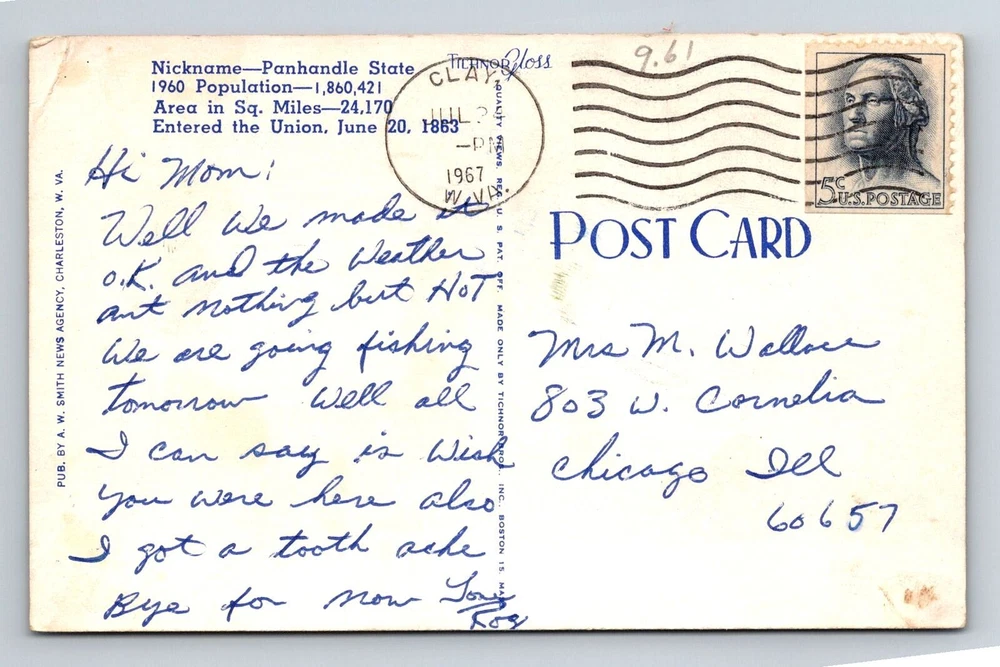 Nickname—Panhandle State
1960 Population—1,860,421
Area in Sq. Miles—24,170
Entered the Union, June 20, 1863
TICHNOR Gloss
CLAY
JUL 2
—PM
1967
W.VA.
9.61
5c
U.S.POSTAGE
POST CARD
Hi Mom!
Well We made it
O.K. and the Weather
ant nothing but HOT
We are going fishing
tomorrow Well all
I can say is Wish
you were here also
I got a tooth ache
Bye for now Love
Rog
Mrs M. Wallace
803 W. Cornelia
Chicago Ill
60657
PUB. BY A. W. SMITH NEWS AGENCY, CHARLESTON, W. VA.
QUALITY VIEWS, REG. U. S. PAT. OFF. MADE ONLY BY TICHNOR BROS., INC., BOSTON 15, MASS.